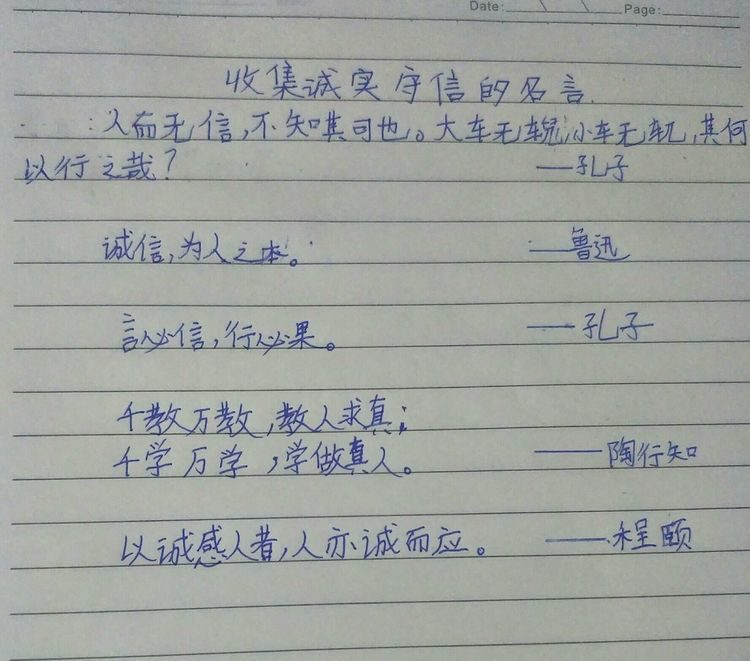 Date: Page:
收集诚实守信的名言
人而无信,不知其可也。大车无輗,小车无軏,其何
以行之哉? ——孔子
诚信,为人之本。 ——鲁迅
言必信,行必果。 ——孔子
千教万教,教人求真;
千学万学,学做真人。 ——陶行知
以诚感人者,人亦诚而应。 ——程颐